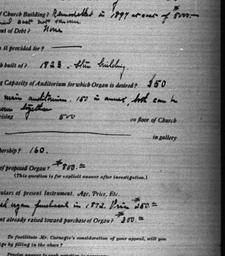 of Church Building? Remodelled in 1897 at cost of $5000—
ount of Debt? None
is it provided for? —
ch built of? 1828 -
ng Capacity of Auditorium for which Organ is desired? 350
main auditorium. 150 in annex, both can be
together
rising 500 on floor of Church
in gallery
bership? 160.
of proposed Organ? $800.00
(This question is for explicit answer after investigation.)
culars of present Instrument. Age, Price, Etc.
organ purchased in 1872. Price $250.00
nt already raised toward purchase of Organ? $200.00
To facilitate Mr. Carnegie's consideration of your appeal, will you
ge by filling in the